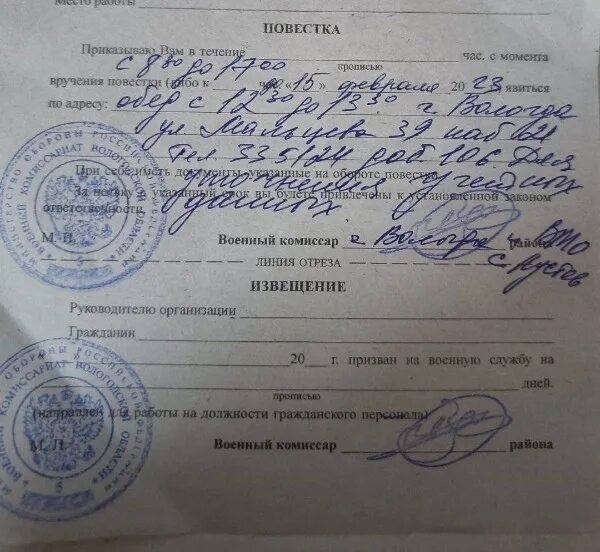 Место работы
ПОВЕСТКА
Приказываю Вам в течение час. с момента
с 8 30 до 17 00
прописью
вручения повестки (либо к до «15» февраля 2023 явиться
по адресу: обед с 12 30 до 13 30 г. Вологда
ул. Мальцева 39 каб
Тел. 335124 доб 106. Для
При себе иметь документы указанные на обороте повестки
учетных
За неявку в указанный срок вы будете привлечены к установленной законом
ответственности. данных.
М. П. Военный комиссар г. Вологда района
ЛИНИЯ ОТРЕЗА
ИЗВЕЩЕНИЕ
Руководителю организации
Гражданин
20 г. призван на военную службу на
дней.
прописью
(направлен для работы на должности гражданского персонала)
М. П. Военный комиссар района
МИНИСТЕРСТВО ОБОРОНЫ РОССИЙСКОЙ ФЕДЕРАЦИИ
ВОЕННЫЙ КОМИССАРИАТ ВОЛОГОДСКОЙ ОБЛАСТИ
5